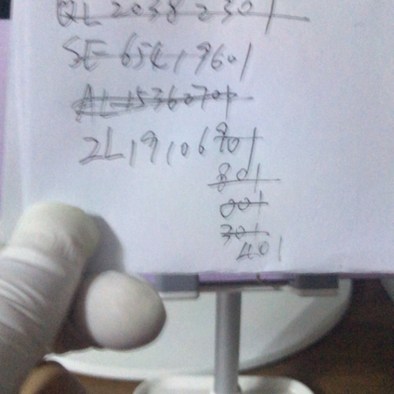 QL20382301
SE65419601
AL15360701
2L19106901
801
001
301
401